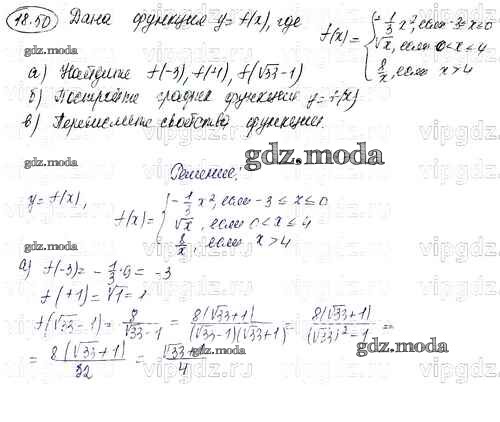 18.50 Дана функция y = f(x), где f(x) = { -1/3 x², если -3 ≤ x ≤ 0
√x, если 0 < x ≤ 4
8/x, если x > 4
а) Найдите f(-3), f(+1), f(√33-1)
б) Постройте график функции y = f(x)
в) Перечислите свойства функции.
gdz.moda
Решение:
y = f(x), f(x) = { -1/3 x², если -3 ≤ x ≤ 0
√x, если 0 < x ≤ 4
8/x, если x > 4
gdz.moda
а) f(-3) = -1/3 · 9 = -3
f(+1) = √1 = 1
f(√33-1) = 8/(√33-1) = 8(√33+1)/((√33-1)(√33+1)) = 8(√33+1)/((√33)²-1) =
= 8(√33+1)/32 = (√33+1)/4
gdz.moda